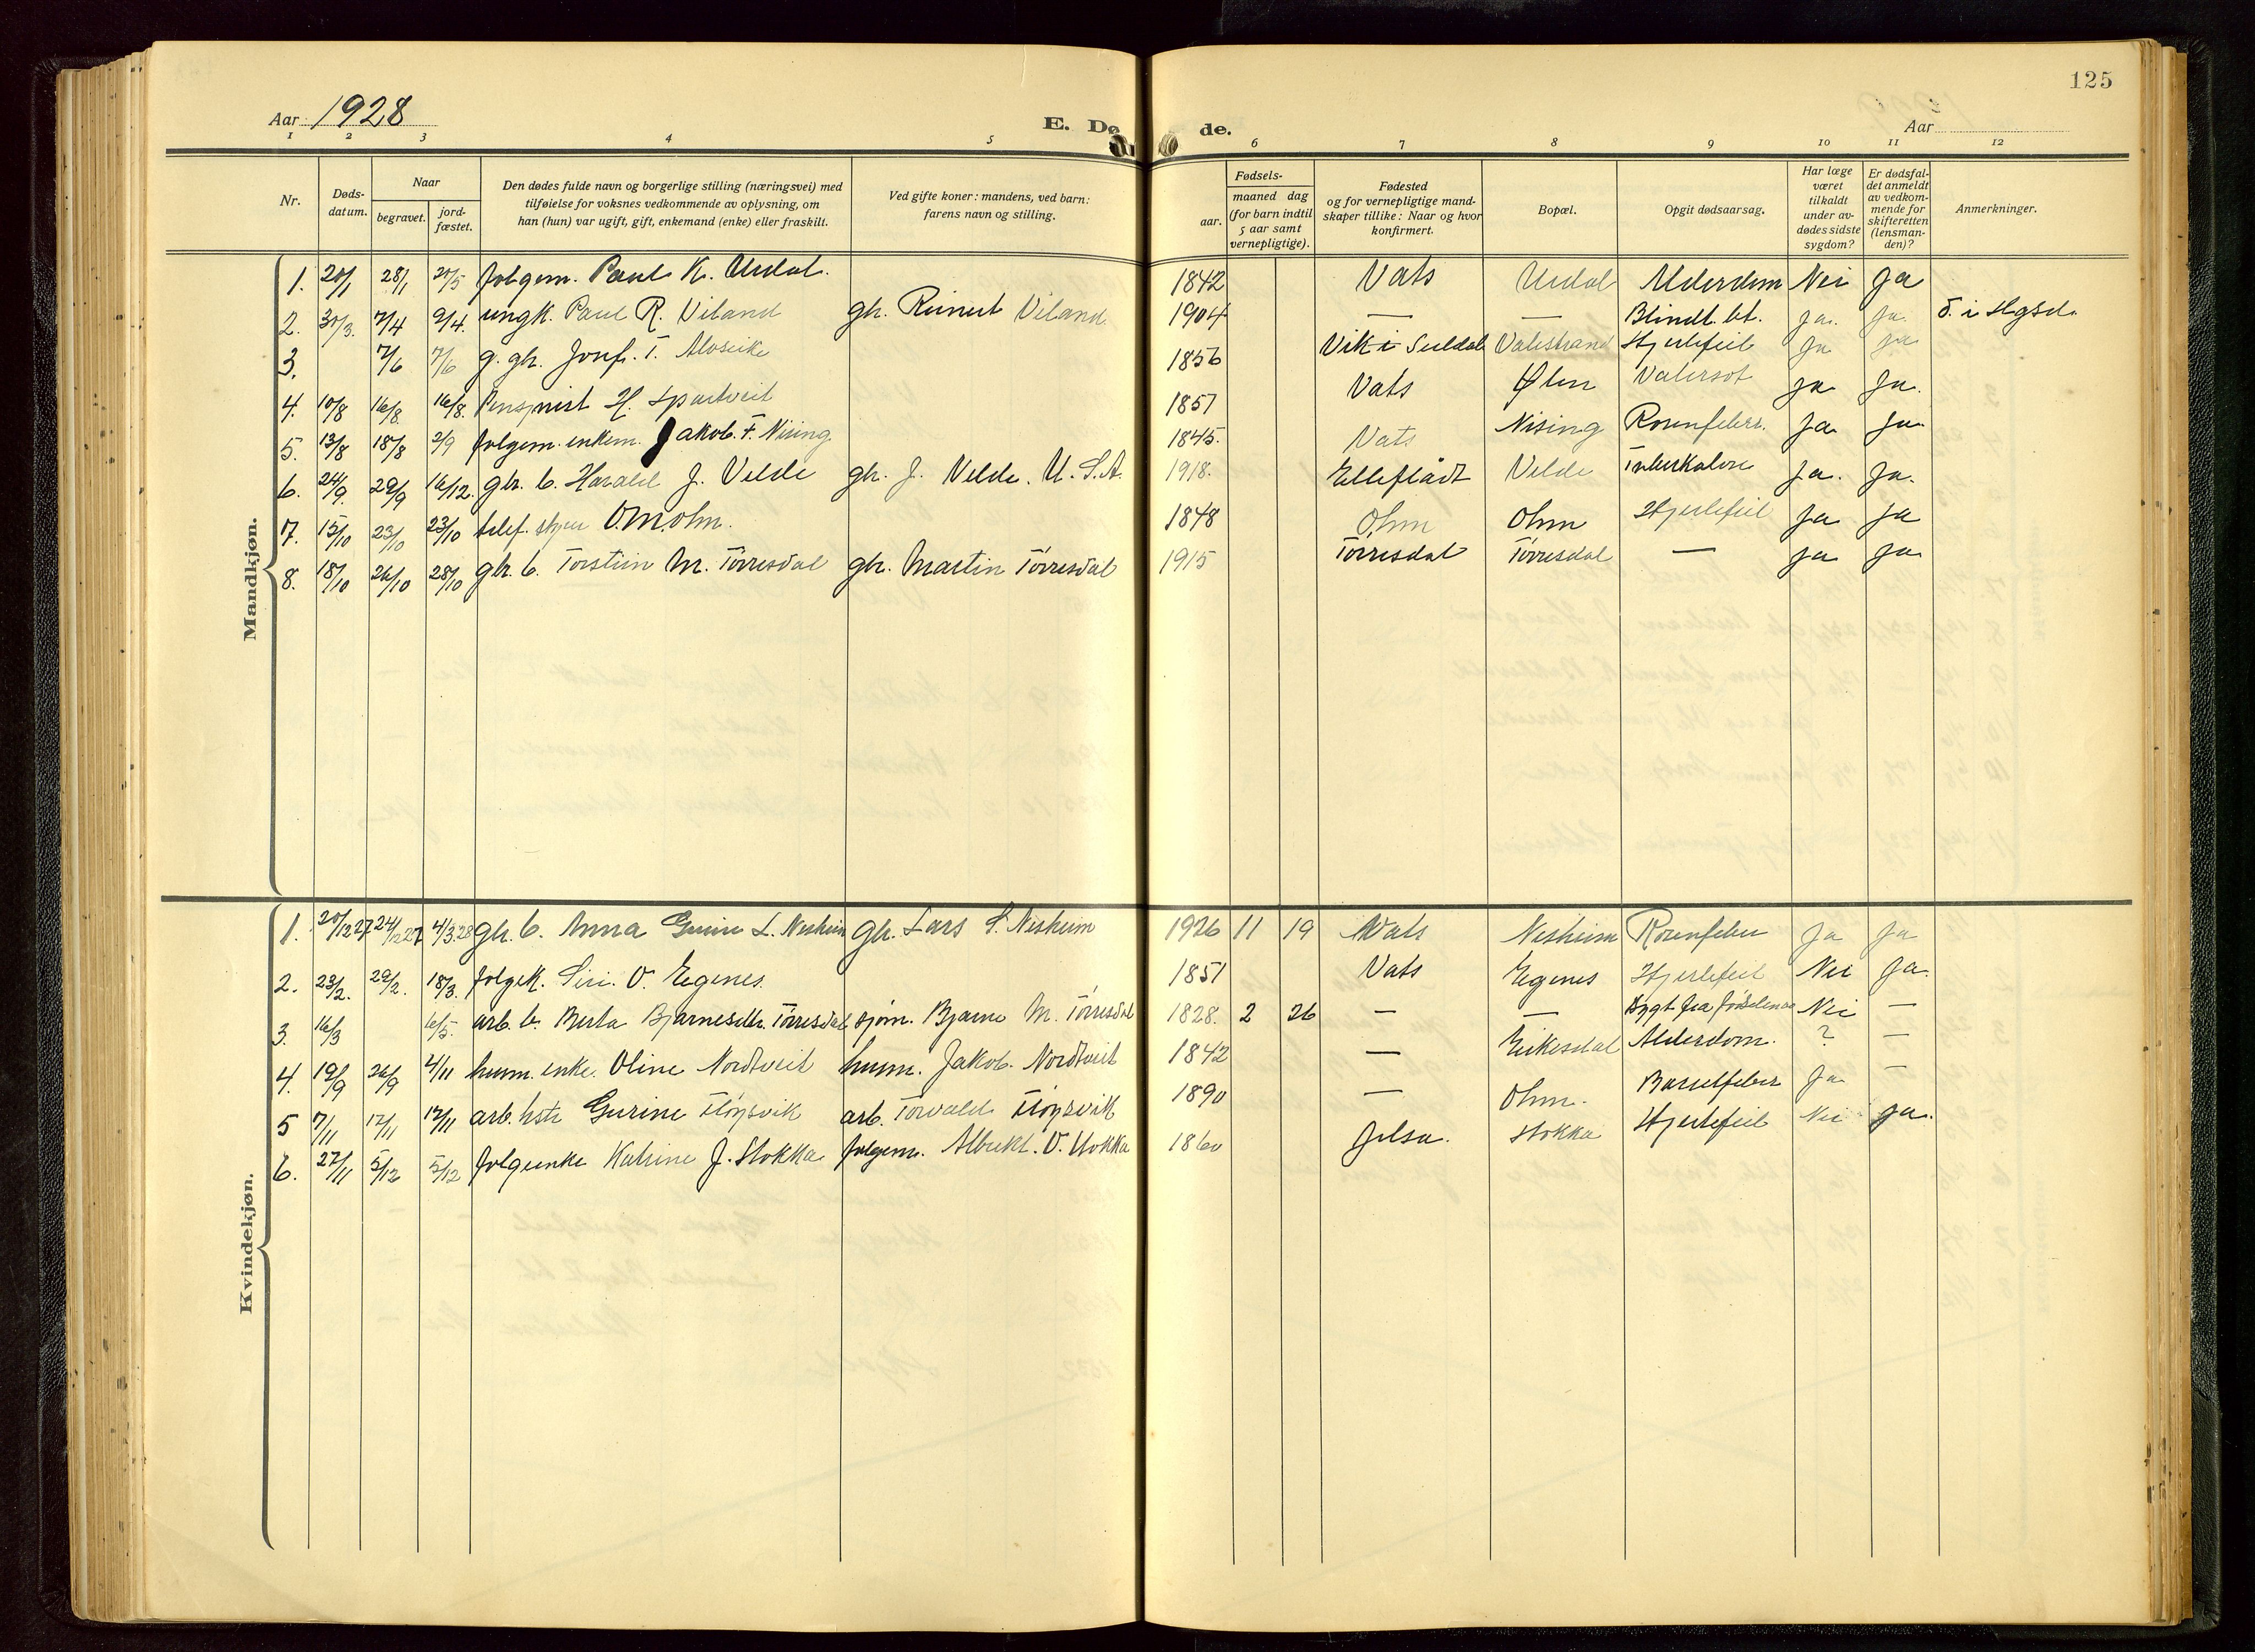 125
Aar 1928
E. Dø de.
Aar
1 2 3 4 5 6 7 8 9 10 11 12
Nr.
Døds-
datum.
Naar
begravet.
jord-
fæstet.
Den dødes fulde navn og borgerlige stilling (næringsvei) med
tilføielse for voksnes vedkommende av oplysning, om
han (hun) var ugift, gift, enkemand (enke) eller fraskilt.
Ved gifte koner: mandens, ved barn:
farens navn og stilling.
Fødsels-
aar.
maaned dag
(for barn indtil
5 aar samt
vernepligtige).
Fødested
og for vernepligtige mand-
skaper tillike: Naar og hvor
konfirmert.
Bopæl.
Opgit dødsaarsag.
Har læge
været
tilkaldt
under av-
dødes sidste
sygdom?
Er dødsfal-
det anmeldt
av vedkom-
mende for
skifteretten
(lensman-
den)?
Anmerkninger.
Mandkjøn.
1. 20/1 28/1 20/5 folgem. Paul K. Urdal. 1842 Vats Urdal Alderdom Nei Ja
2. 30/3. 7/4 9/4. ungk. Paul R. Viland gbr. Reinert Viland 1904 — — Blindt. bet. ja. ja. d. i Hgsd.
3. 7/6 7/6 g. gbr. Josef. T. Alvseike 1856 Vik i Suldal Vatsstrand Hjertefeil ja ja
4. 10/8 16/8. 16/8. Pensjnist H. Spartveit 1857 Vats Ølen Vatersot ja ja.
5. 13/8 18/8 2/9 folgem. enkem. Jakob. F. Nising. 1845. Vats Nising Rosenfeber. ja ja
6. 24/9. 29/9 16/12. gbr. b. Harald J. Velde gbr. J. Velde. U.S.A. 1918. Elleflådt Velde Tuberkulose ja. ja.
7. 15/10 23/10 23/10 telef. styrer O. M. Ohm. 1848 Ohm Ohm Hjertefeil ja ja
8. 18/10 26/10 28/10 gbr. b. Torstein M. Tørresdal gbr. Martin Tørresdal 1915 Tørresdal Tørresdal — ja ja
Kvindekjøn.
1. 20/12 27 24/12 27 4/3 28 gbr. b. Anna Gurine L. Nesheim gbr. Lars S. Nesheim 1926 11 19 Vats Nesheim Rosenfeber Ja Ja
2. 23/2. 29/2. 18/3. folgek. Siri. O. Egenes. 1851 Vats Egenes Hjertefeil Nei Ja.
3. 16/3 6/5. arb. b. Berta Bjarnesdtr. Tørresdal sjøm. Bjarne M. Tørresdal 1828. 2 26 — — Sygt fra fødselen av Nei —
4. 19/9 26/9 4/11 husm. enke. Oline Nordtveit husm. Jakob. Nordtveit 1842 — Eikesdal Alderdom. ? —
5 7/11 12/11 12/11 arb. hstr Gurine Fløysvik arb. Torvald Fløysvik 1890 — Ohm. Barselfeber Ja —
6. 27/11 5/12 5/12 folgeenke Katrine J. Stokka folgem. Albrekt. O. Stokka 1860 Jelsa. Stokka Hjertefeil Nei ja.